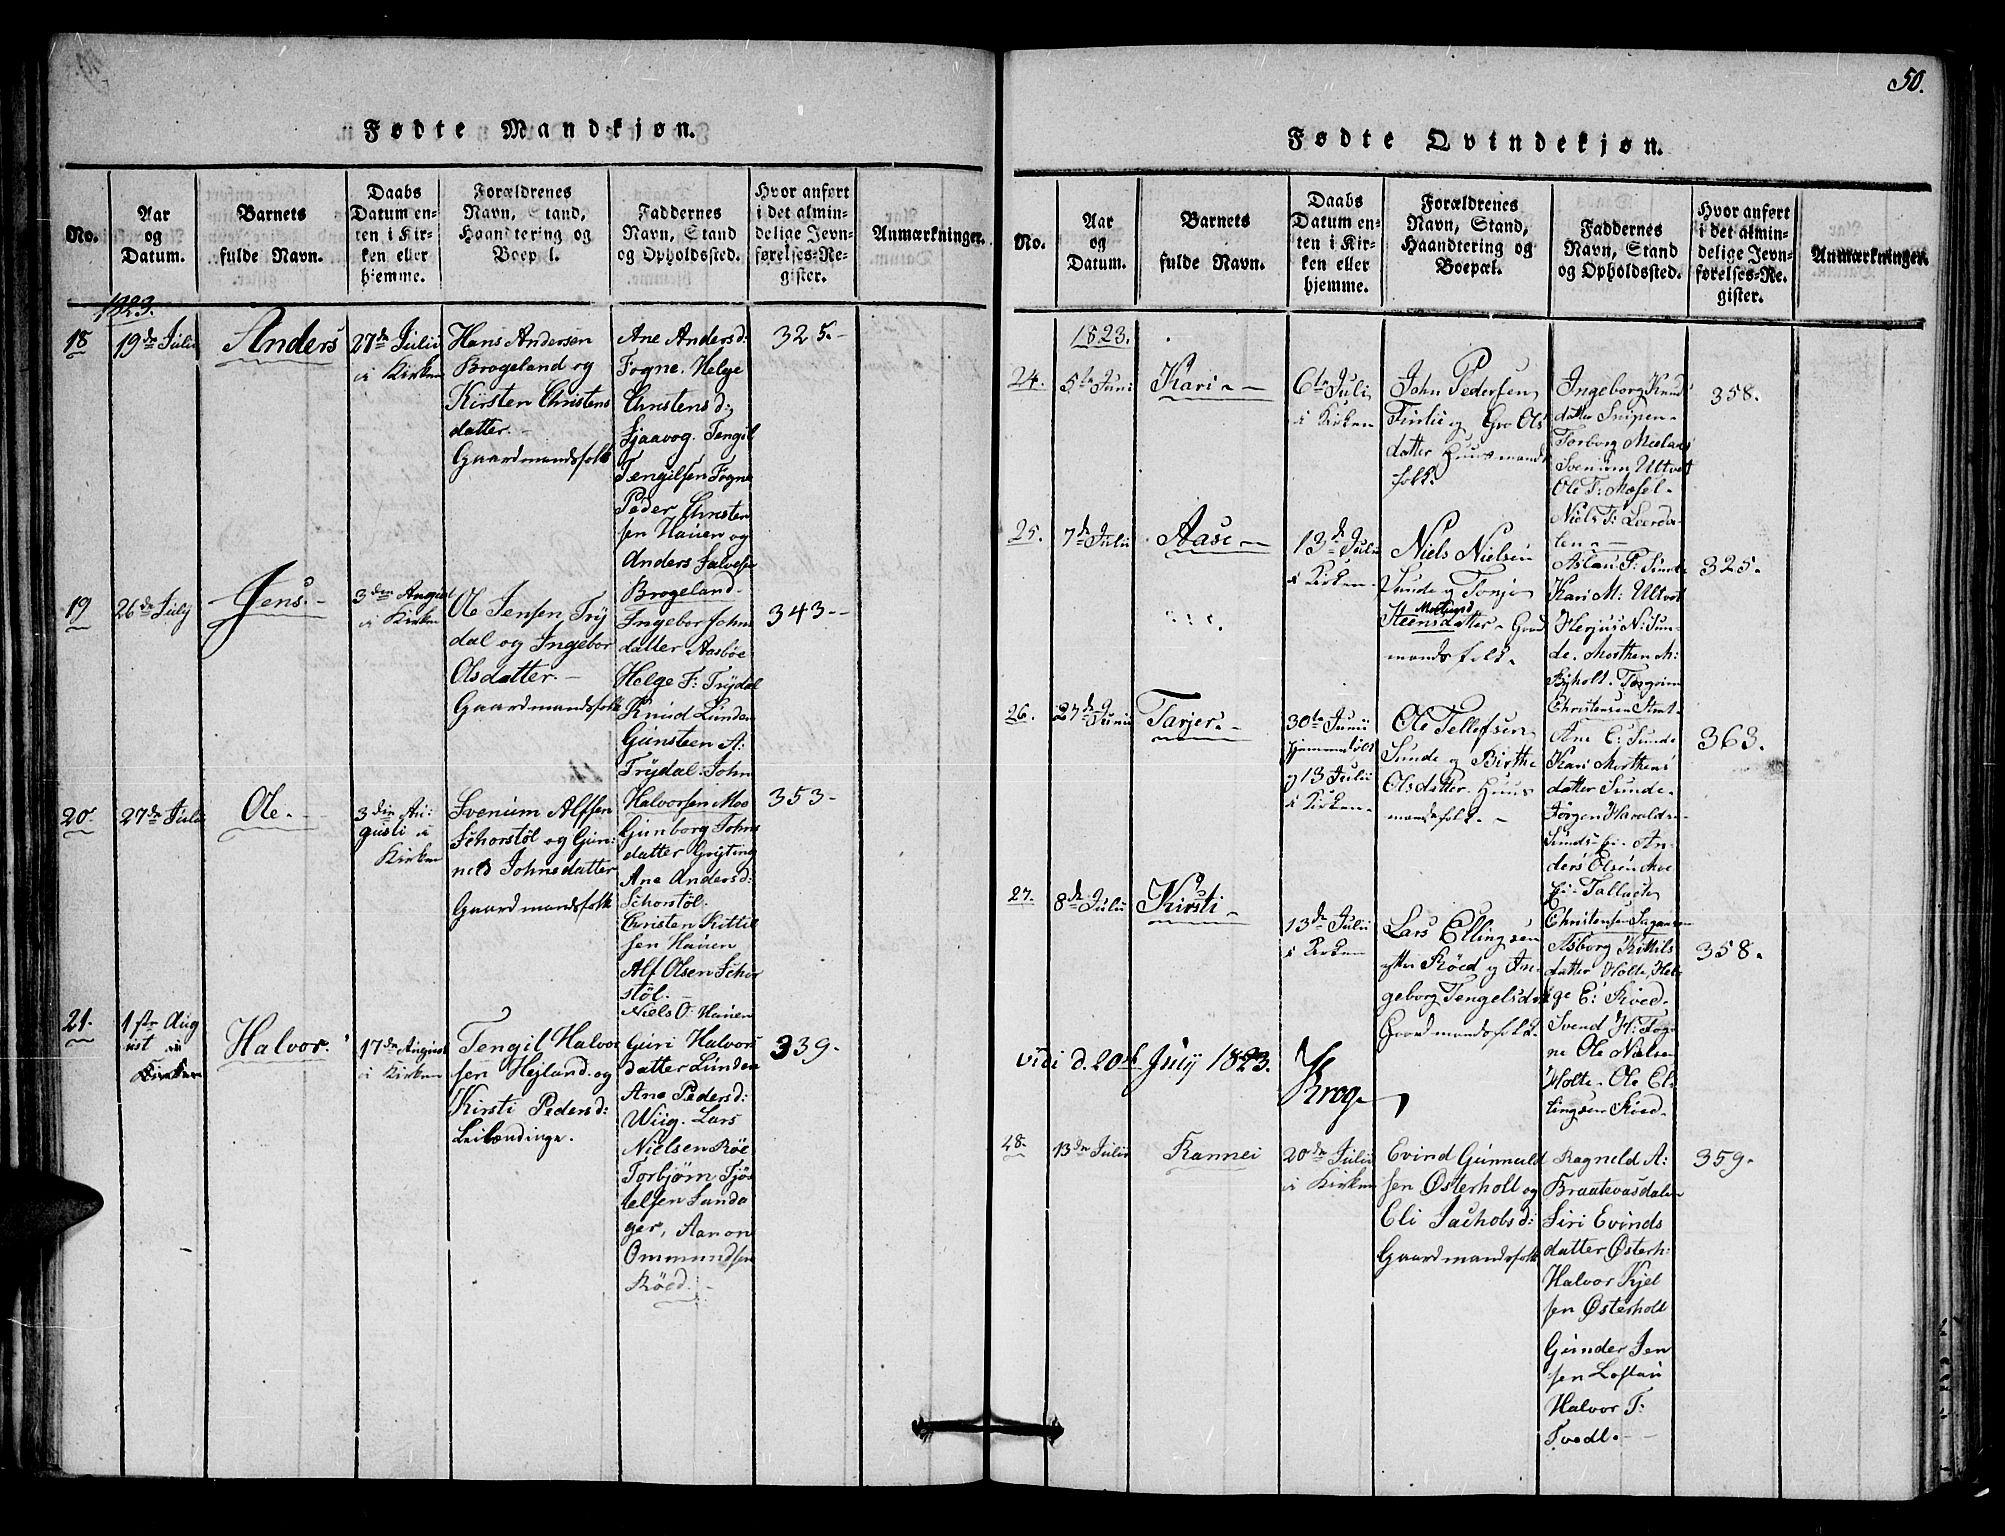 50.
Fødte Mandkjøn.
No.
Aar
og
Datum.
Barnets
fulde Navn.
Daabs
Datum en-
ten i Kir-
ken eller
hjemme.
Forældrenes
Navn, Stand,
Haandtering og
Boepæl.
Faddernes
Navn, Stand
og Opholdssted.
Hvor anført
i det almin-
delige Jevn-
førelses-Re-
gister.
Anmærkninger.
1823.
18
19de Julii
Anders
27de Julii
i Kirken
Hans Andersen
Brogeland og
Kirsten Christens
datter.
Gaardmandsfolk
Ane Andersd:
Fogne. Helge
Christensd:
Sjaavog. Tengil
Tengilsen Fogne
Peder Christen
sen Hauen og
Anders Salvesen
Brogeland
325.-
19
26de July
Jens
3den August
i Kirken
Ole Jensen Try
dal og Ingebor
Olsdatter.-
Gaardmandsfolk
Ingebor John
datter Aasbøe
Helge F: Trydal
Knud Lunden
Gunsteen A:
Trydal. John
Halvorsen Moe
343--
20
27de Julii
Ole.-
3den Au-
gusti i
Kirken
Svenum Alfsen
Schorstöl og Gun-
neld Johnsdatter
Gaardmandsfolk
Gunborg Johns
datter Gryting
Ane Andersd:
Schorstöl.
Christen Kittil
sen Hauen
Alf Olsen Schor
stöl.-
Niels O. Hauen
353-
21.
1ste Aug
ust i
Kirken
Halvor.
17de August
i Kirken
Tengil Halvor
sen Hejland og
Kirsti Pedersd:
Leilændinge.
Guri Halvors
datter Lunden
Ane Pedersd:
Wiig. Lars
Nielsen Röe
Torbjörn Tjös
telsen Sunda
ger, Aanon
Ommundsen
Röed.-
339-
Fødte Qvindekjøn.
No.
Aar
og
Datum.
Barnets
fulde Navn.
Daabs
Datum en-
ten i Kir-
ken eller
hjemme.
Forældrenes
Navn, Stand,
Haandtering og
Boepæl.
Faddernes
Navn, Stand
og Opholdssted.
Hvor anført
i det almin-
delige Jevn-
førelses-Re-
gister.
Anmærkninger.
1823.
24.
5te Juni
Kari-
6te Juli
i Kirken
John Pedersen
og Gro Ols
datter Huusmands
folk.
Ingeborg Knud
datter Snipen-
Torborg
Svenum Ultvet
Ole T: Mosel-
Niels T:
358.
25.
7de Julii
Aase-
13de Julii
i Kirken-
Niels Nielsen
Sunde og Tonje
Steensdatter- Gaard
mandsfolk.
Aslau P: Sunde
Kari M: Ultvet
Herjus N: Sun-
de. Morthen M:
Byholt. Torgrim
Christensen
325.
26.
27de Junii
Tarjer-
30te Junii
hjemmedøbt
og 13 Julii
i Kirken-
Ole Tellefsen
Sunde og Birthe
Olsdatter. Huus
mandsfolk.-
Ane E: Sunde
Kari Morthens
datter Sunde-
Jörgen Harald-
An-
ders Olsen Moe
Christensen
363.
27.
8de Julii
Kirsti-
13de Julii
i Kirken
Lars Ellingsen
ytter Röed og In-
geborg Tengelsd
Gaardmandsfolk.
Asborg Kittils
datter Holte, Hel-
ge E: Röed-
Svend H: Fog-
ne Ole Nielsen
Holte- Ole El-
lingsen Röed-
358.
vidi d. 20de July 1823.
Krog
48.
13de Julii
Rannei
20de Julii
i Kirken
Evind Gunnuld
sen Østerholt og
Eli Jachobsd:
Gaardmandsfolk
Ragneld A:
Braatevasdalen
Siri Evinds
datter Østerh:
Halvor Kjel
sen Østerholt
Gunder Jen
sen Løftau
Halvor T:
Tvedt.-
359-